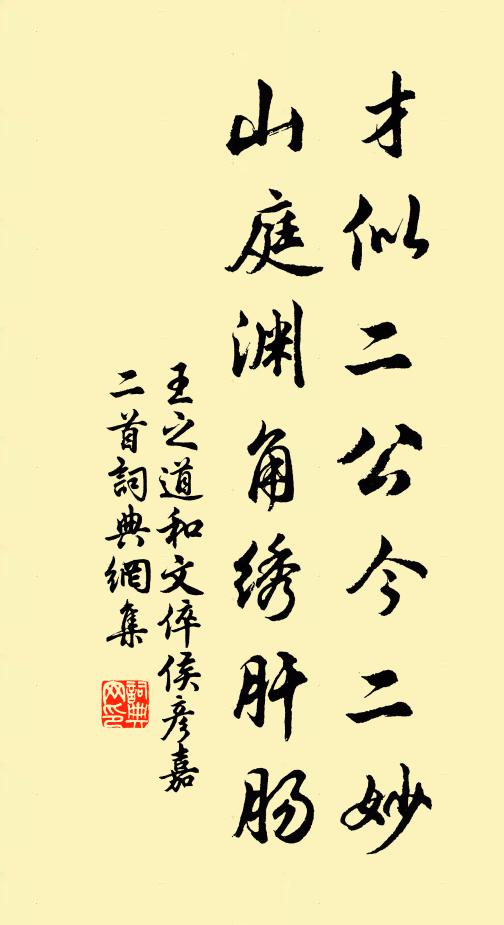 才似二公今二妙
山庭渊角绣肝肠
王之道和文倅侯彦嘉
二首詞典網集
詞典
网印